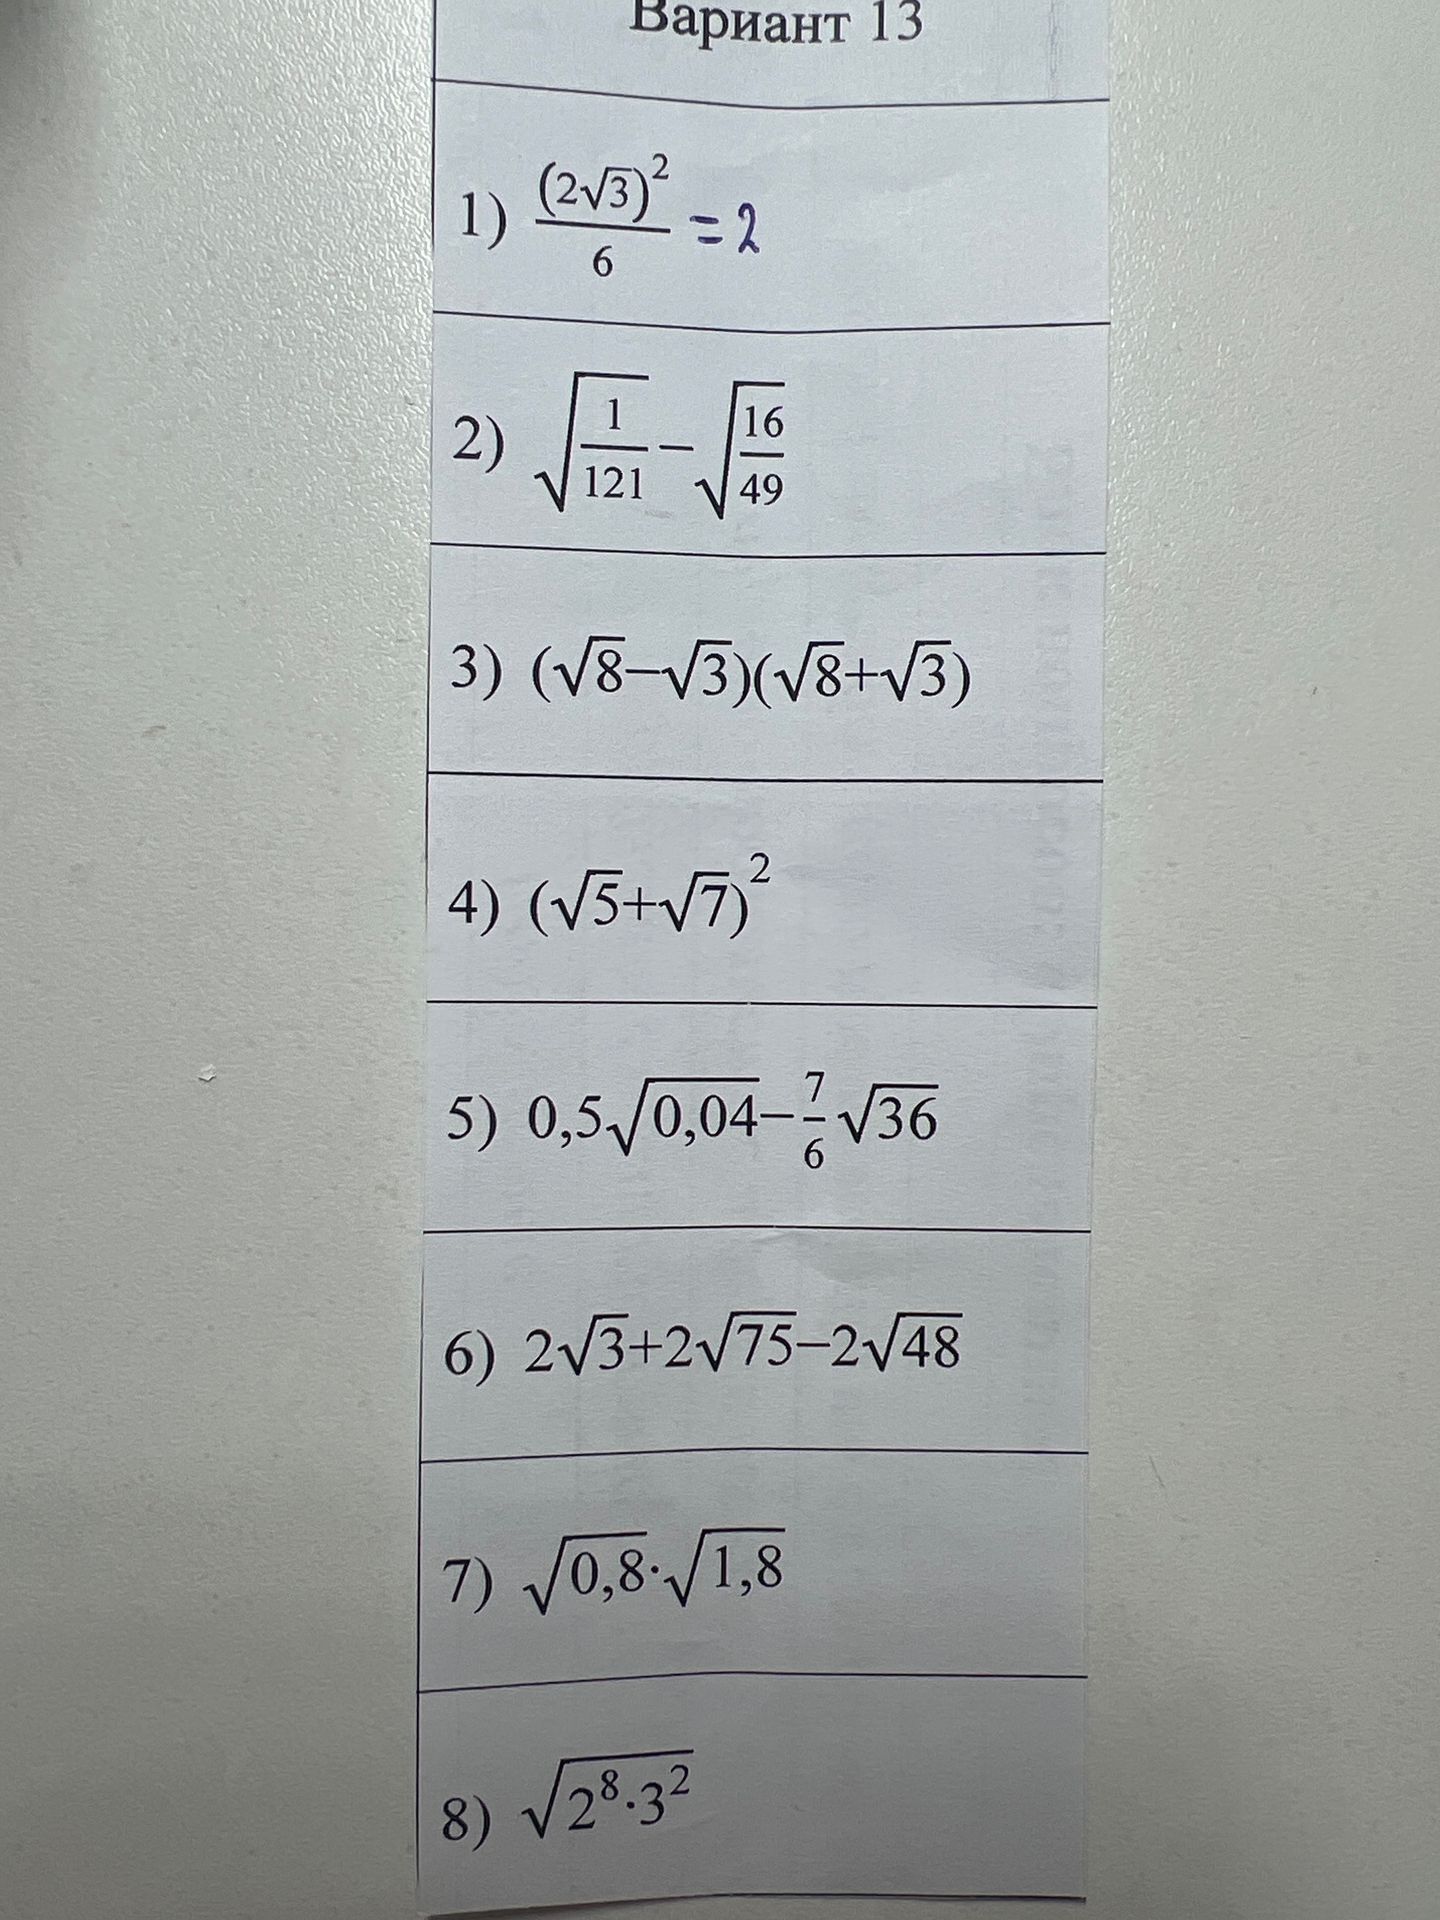 Вариант 13
1) (2√3)²/6 = 2
2) √(1/121) − √(16/49)
3) (√8−√3)(√8+√3)
4) (√5+√7)²
5) 0,5√0,04 − 7/6 √36
6) 2√3+2√75−2√48
7) √0,8·√1,8
8) √(2⁸·3²)